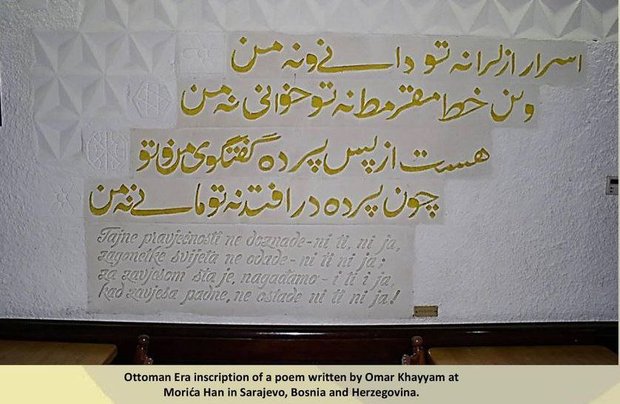 اسرار ازل را نه تو دانی و نه من
وین خط مقرمط نه تو خوانی نه من
هست از پس پرده گفتگوی من و تو
چون پرده در افتد نه تو مانی نه من
Tajne pravječnosti ne doznade - ni ti, ni ja,
zagonetke svijeta ne odade - ni ti ni ja;
za zavjesom šta je, nagađamo - i ti i ja,
kad zavjesa padne, ne ostade ni ti ni ja!
Ottoman Era inscription of a poem written by Omar Khayyam at
Morića Han in Sarajevo, Bosnia and Herzegovina.